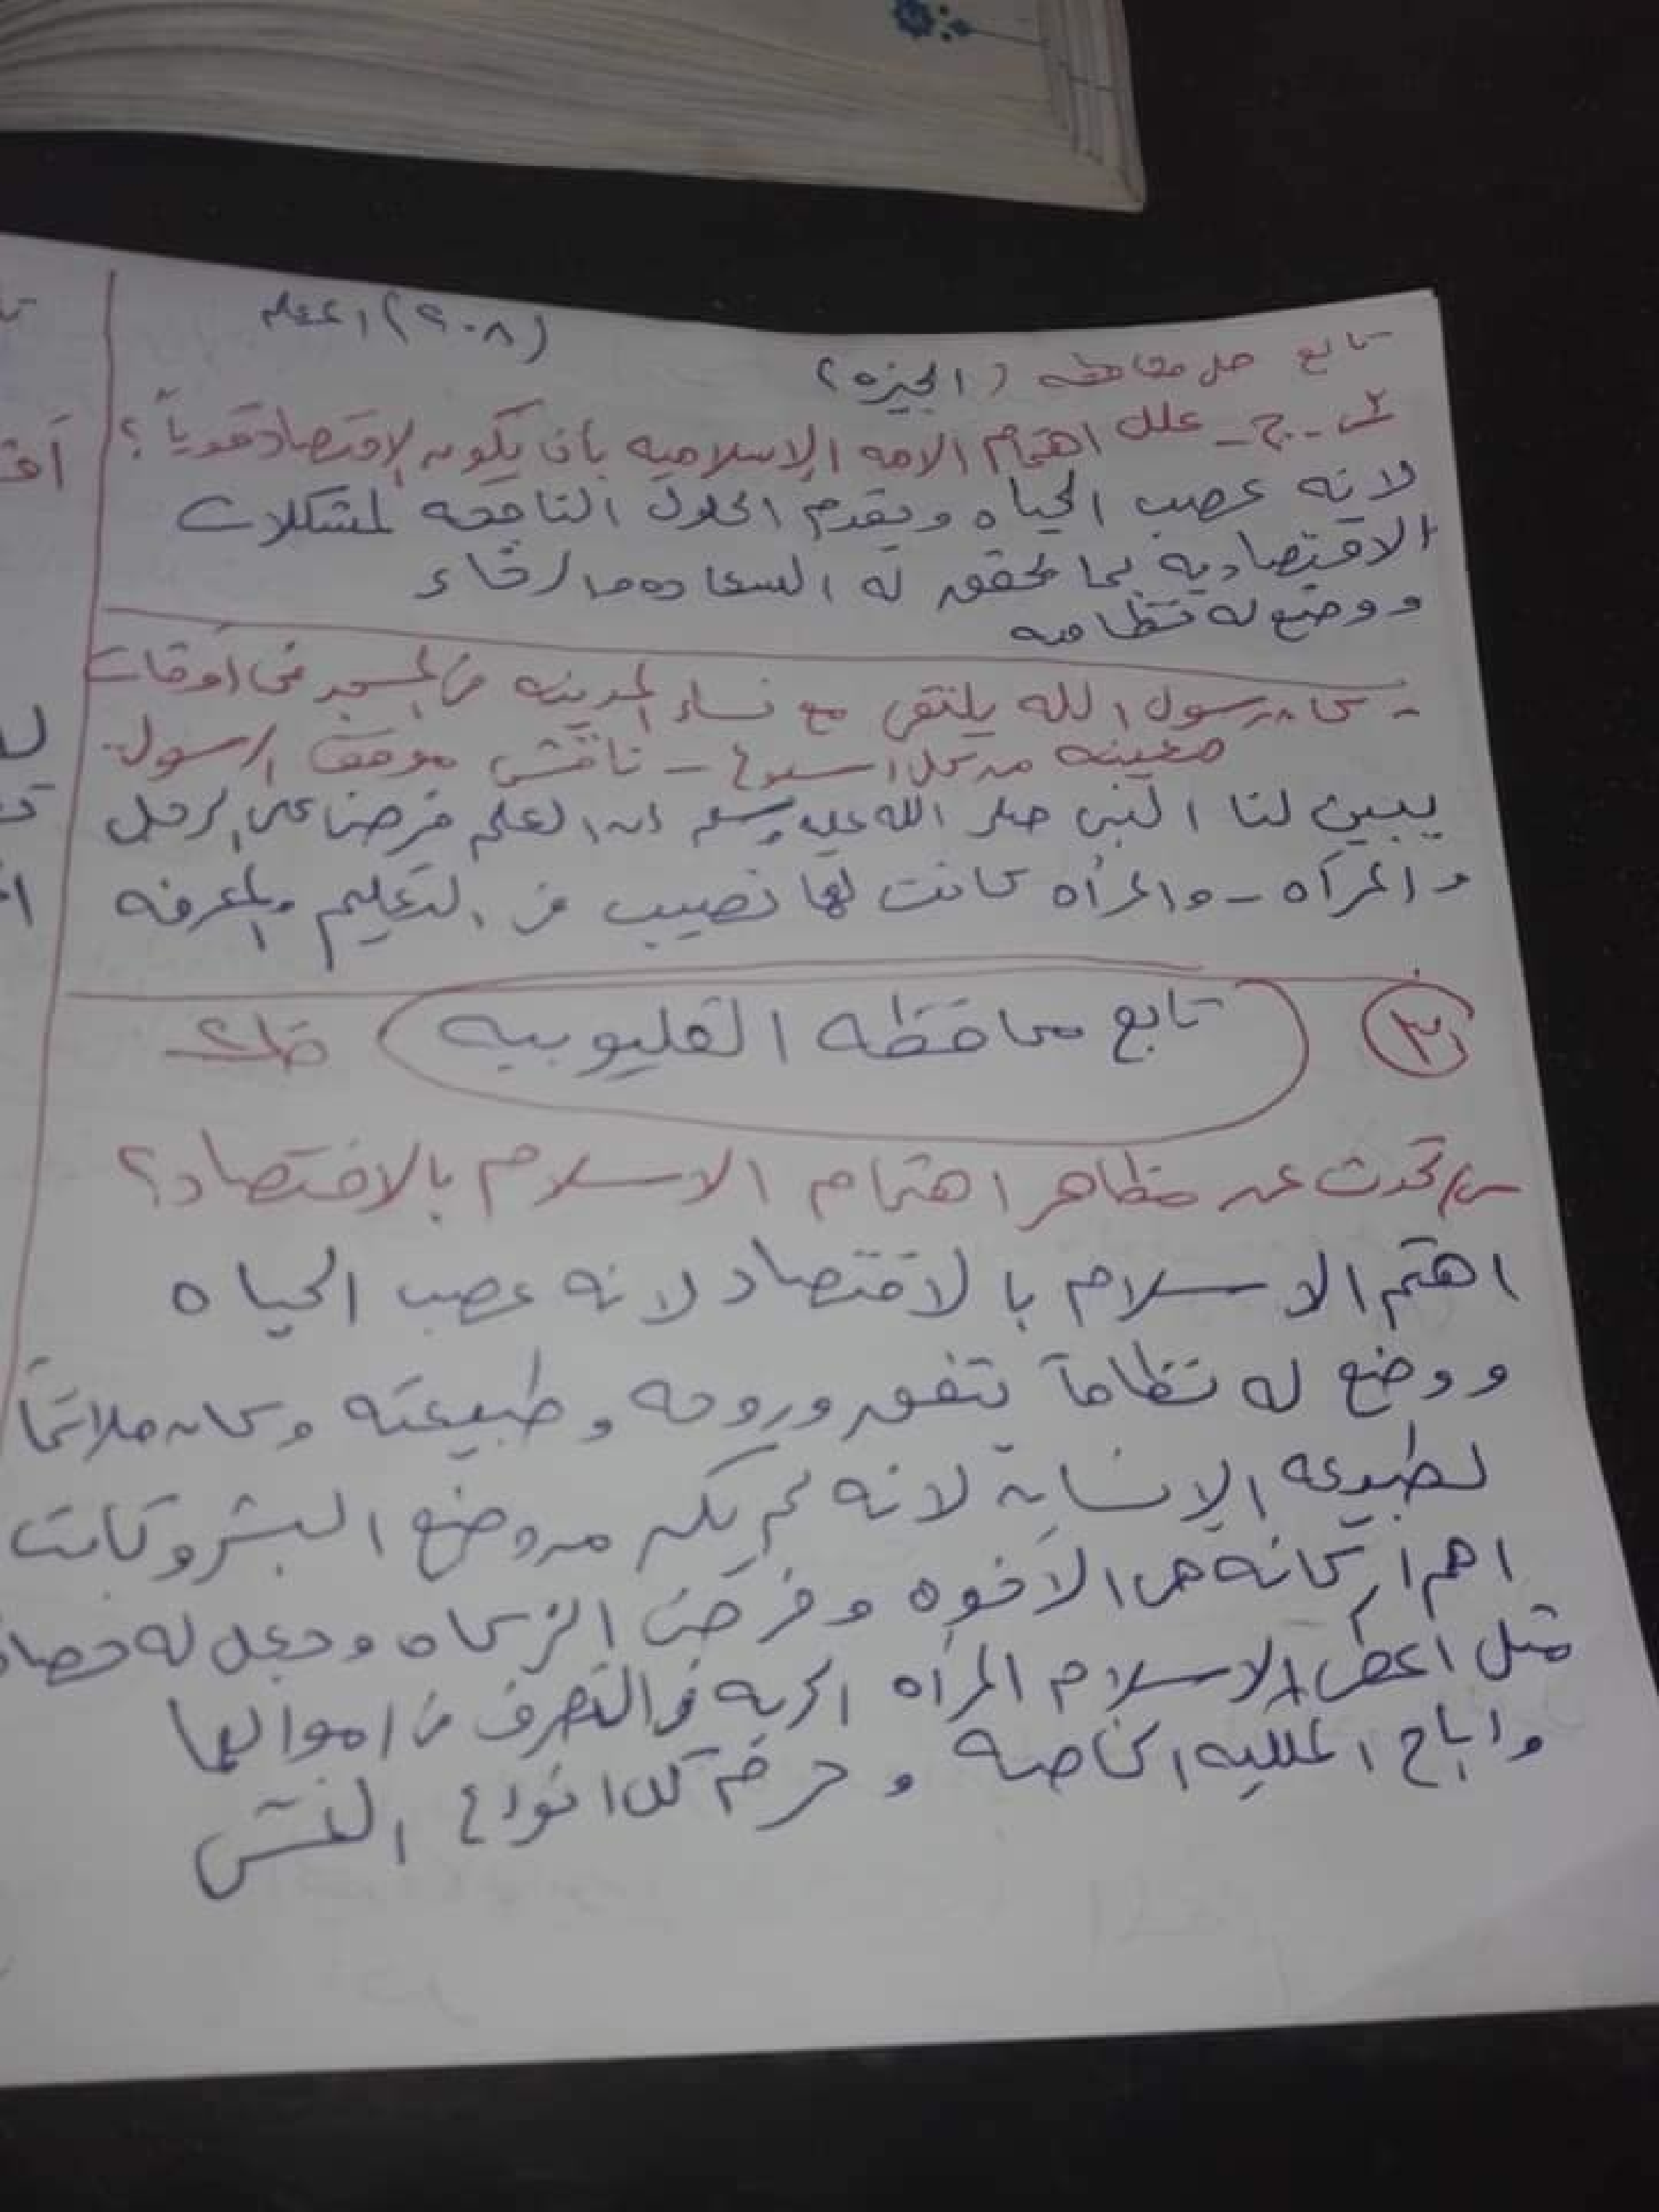 تابع حل محافظه (الجيزه) (٩٠٨) المعلم
ج - علل اهتمام الامه الإسلاميه بان يكون الإقتصاد قوياً؟
لانه عصب الحياه ويقدم الحلول الناجحه لمشكلات
الاقتصادية بما يحقق له السعاده والرخاء
ووضع له نظامه
- كان رسول الله يلتقى مع نساء المدينه فى المسجد فى أوقات
معينه من كل اسبوع - ناقش موقف الرسول.
يبين لنا النبى صلى الله عليه وسلم ان العلم فرضا على الرجل
والمرآه - والمرأه كانت لها نصيب من التعليم والمعرفه
٣ تابع محافظه القليوبيه
س/ تحدث عن مظاهر اهتمام الاسلام بالاقتصاد؟
اهتم الاسلام بالاقتصاد لانه عصب الحياه
ووضع له نظاماً يتفق وروحه وطبيعته وكان ملائماً
لطبيعه الإنسانية لانه لم يكن من وضع البشر وكانت
اهم اركانه هى الآخوه وفرض الزكاه وجعل له
مثل اعطى الاسلام المرأه الحريه فى التصرف فى اموالها
واباح الملكيه الخاصه وحرم كل انواع الغش